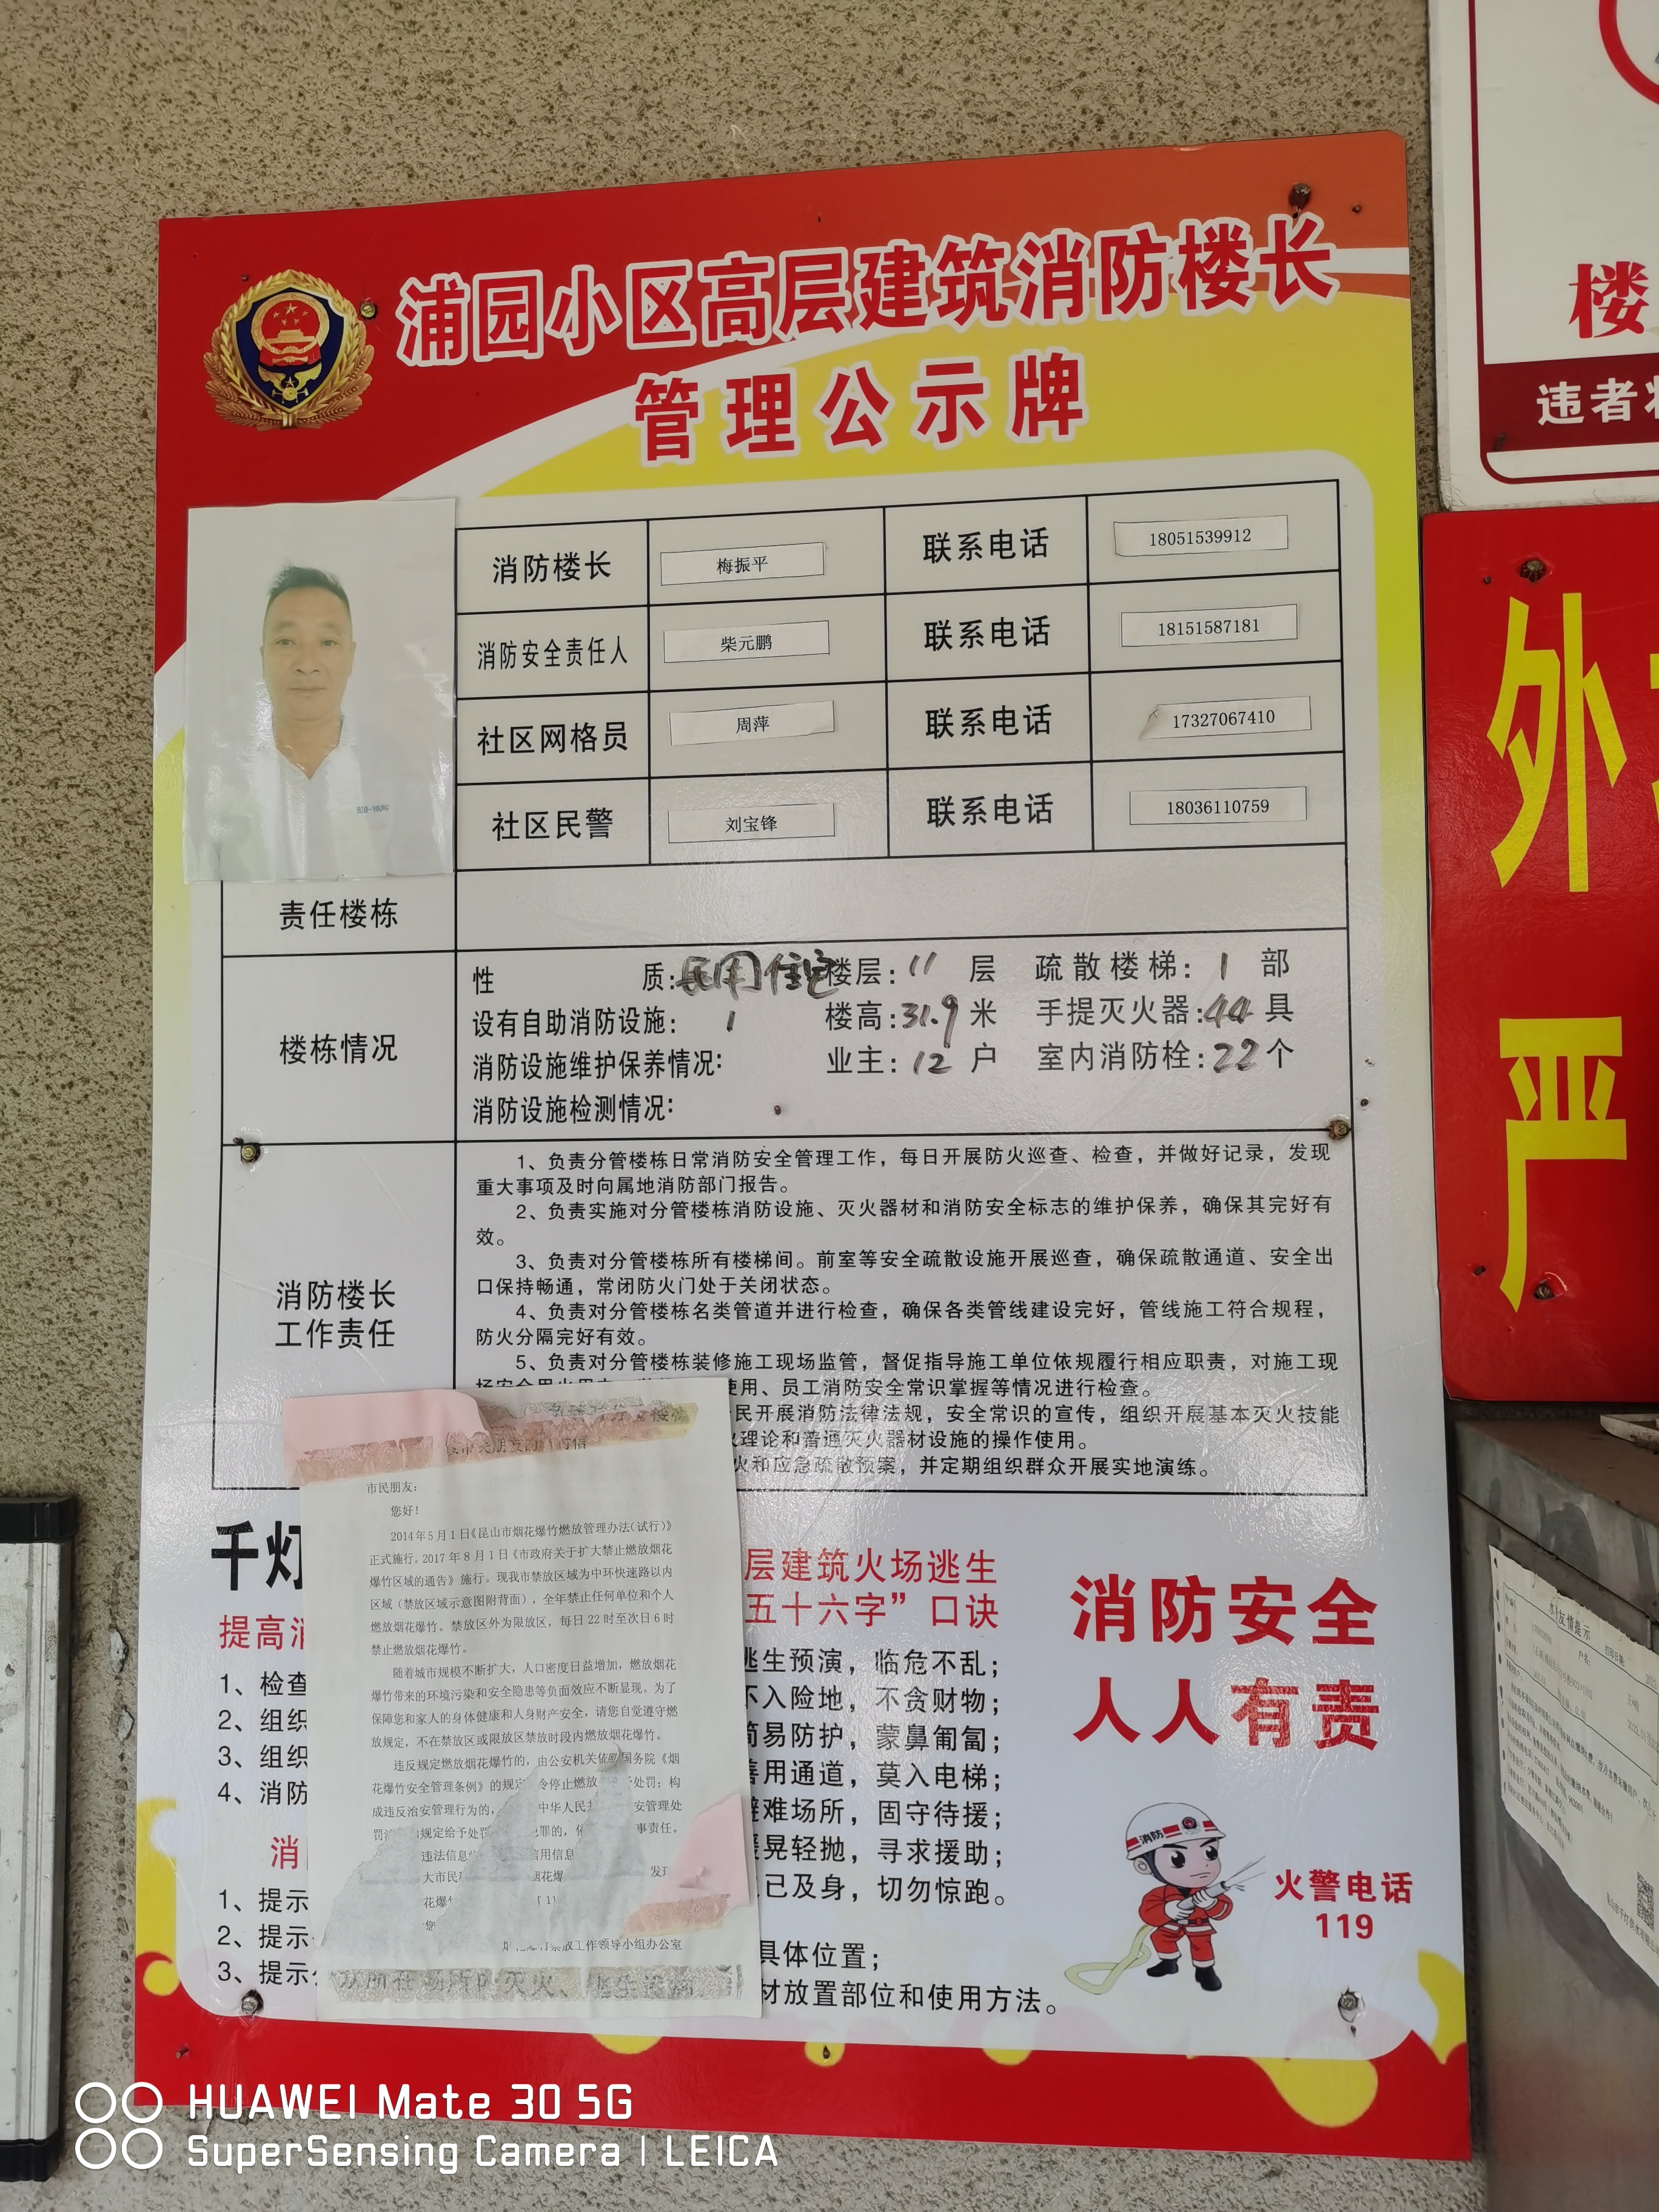 浦园小区高层建筑消防楼长
管理公示牌
消防楼长 梅振平 联系电话 18051539912
消防安全责任人 柴元鹏 联系电话 18151587181
社区网格员 周萍 联系电话 17327067410
社区民警 刘宝锋 联系电话 18036110759
BIO-YOUNG
责任楼栋
楼栋情况
性 质:民用住宅 楼层:11 层 疏散楼梯: 1 部
设有自助消防设施: 1 楼高:31.9 米 手提灭火器:44 具
消防设施维护保养情况: 业主:12 户 室内消防栓:22 个
消防设施检测情况:
消防楼长
工作责任
1、负责分管楼栋日常消防安全管理工作，每日开展防火巡查、检查，并做好记录，发现
重大事项及时向属地消防部门报告。
2、负责实施对分管楼栋消防设施、灭火器材和消防安全标志的维护保养，确保其完好有
效。
3、负责对分管楼栋所有楼梯间。前室等安全疏散设施开展巡查，确保疏散通道、安全出
口保持畅通，常闭防火门处于关闭状态。
4、负责对分管楼栋名类管道井进行检查，确保各类管线建设完好，管线施工符合规程，
防火分隔完好有效。
5、负责对分管楼栋装修施工现场监管，督促指导施工单位依规履行相应职责，对施工现
使用、员工消防安全常识掌握等情况进行检查。
民开展消防法律法规，安全常识的宣传，组织开展基本灭火技能
理论和普通灭火器材设施的操作使用。
火和应急疏散预案，并定期组织群众开展实地演练。
市民朋友:
您好!
2014年5月1日《昆山市烟花爆竹燃放管理办法(试行)》
正式施行。2017年8月1日《市政府关于扩大禁止燃放烟花
爆竹区域的通告》施行。现我市禁放区域为中环快速路以内
区域(禁放区域示意图附背面)，全年禁止任何单位和个人
燃放烟花爆竹。禁放区外为限放区，每日22时至次日6时
禁止燃放烟花爆竹。
随着城市规模不断扩大，人口密度日益增加，燃放烟花
爆竹带来的环境污染和安全隐患等负面效应不断显现。为了
保障您和家人的身体健康和人身财产安全，请您自觉遵守燃
放规定，不在禁放区或限放区禁放时段内燃放烟花爆竹。
违反规定燃放烟花爆竹的，由公安机关依 国务院《烟
花爆竹安全管理条例》的规定 令停止燃放 处罚；构
成违反治安管理行为的， 中华人民共 安管理处
罚 规定给予处罚 犯罪的， 事责任。
违法信息 信用信息
大市民 烟花爆 发现
花爆
禁放工作领导小组办公室
千灯
提高消
1、检查
2、组织
3、组织
4、消防
消
1、提示
2、提示
3、提示
层建筑火场逃生
五十六字”口诀
逃生预演，临危不乱；
不入险地，不贪财物；
简易防护，蒙鼻匍匐；
善用通道，莫入电梯；
避难场所，固守待援；
缓晃轻抛，寻求援助；
已及身，切勿惊跑。
具体位置；
材放置部位和使用方法。
消防安全
人人有责
消防
火警电话
119
楼
违者将
外
严
友情提示
HUAWEI Mate 30 5G
SuperSensing Camera | LEICA